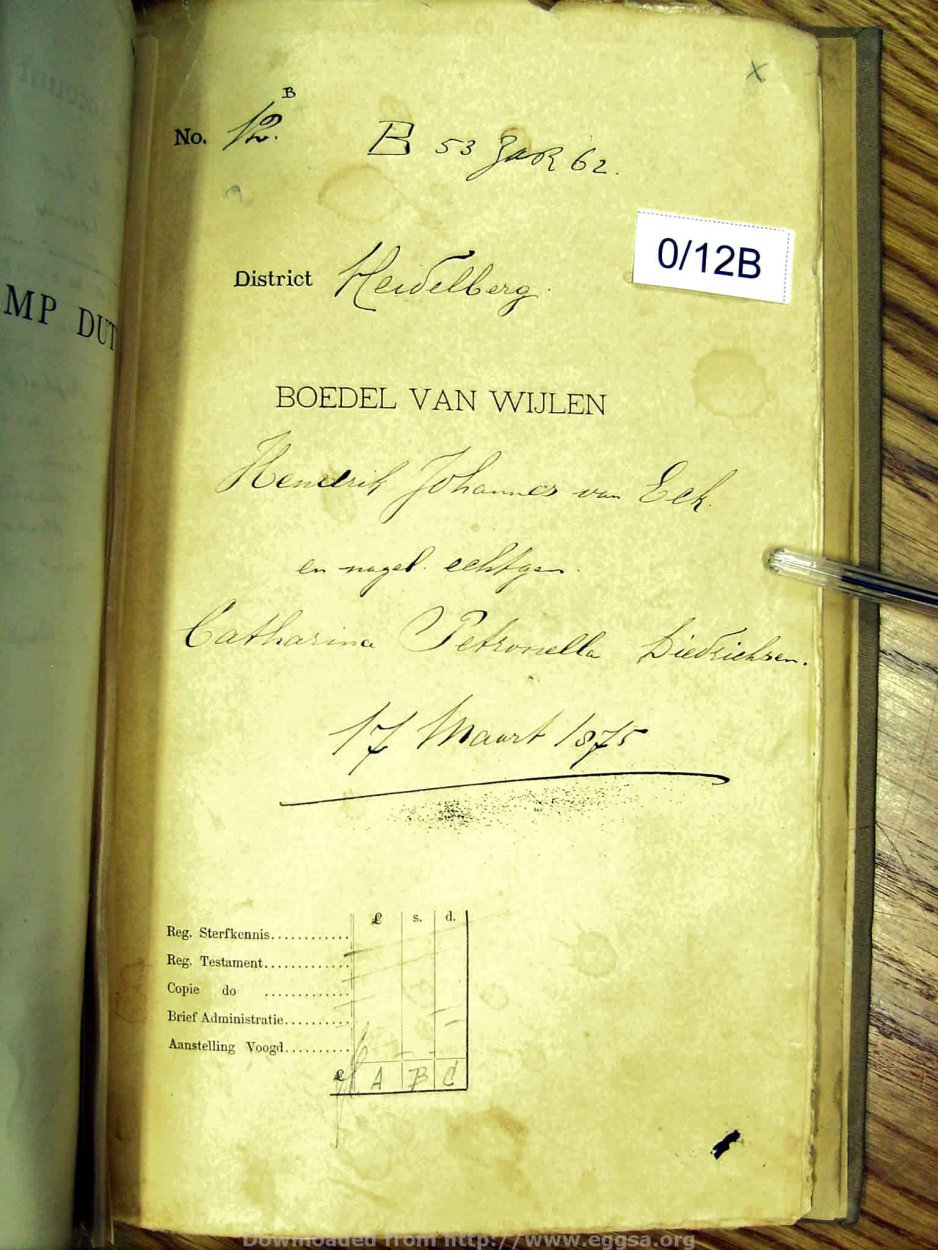 X
B
No. 12.
B 53 ZAR 62.
0/12B
District Heidelberg.
MP DUT
BOEDEL VAN WIJLEN
Hendrik Johannes van Eck
en nagel. echtgen.
Catharina Petronella Diedrichsen.
17 Maart 1875
£ s. d.
Reg. Sterfkennis............
Reg. Testament.............
Copie do .............
Brief Administratie..........
Aanstelling Voogd..........
£ A B C
Downloaded from http://www.eggsa.org